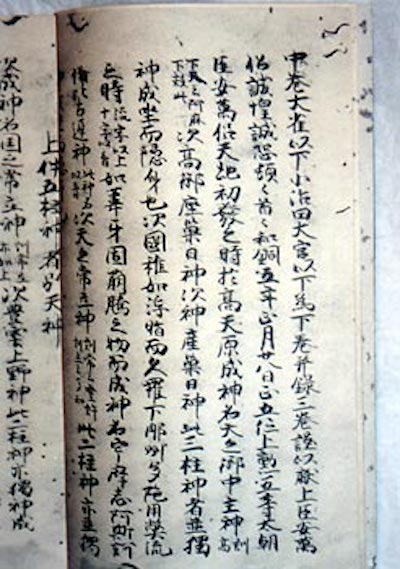 中巻大雀以下小治田大宮以下為下巻并録三巻謹以献上臣安萬
侶誠惶誠恐頓々首々和銅五年正月廿八日正五位上勲五等太朝
臣安萬侶天地初發之時於高天原成神名天之御中主神訓高
下天云阿麻下效此次高御産巣日神次神産巣日神此三柱神者並獨
神成坐而隠身也次國稚如浮脂而久羅下那州多陁用弊流
之時流字以上十字以音如葦牙因萌騰之物而成神名宇摩志阿斯訶
備比古遅神此神名以音次天之常立神訓常云登許訓立云多知此二柱神亦並獨
上件五柱神者別天神
次成神名国之常立神訓常立亦如上次豊雲上野神此二柱神亦獨神成